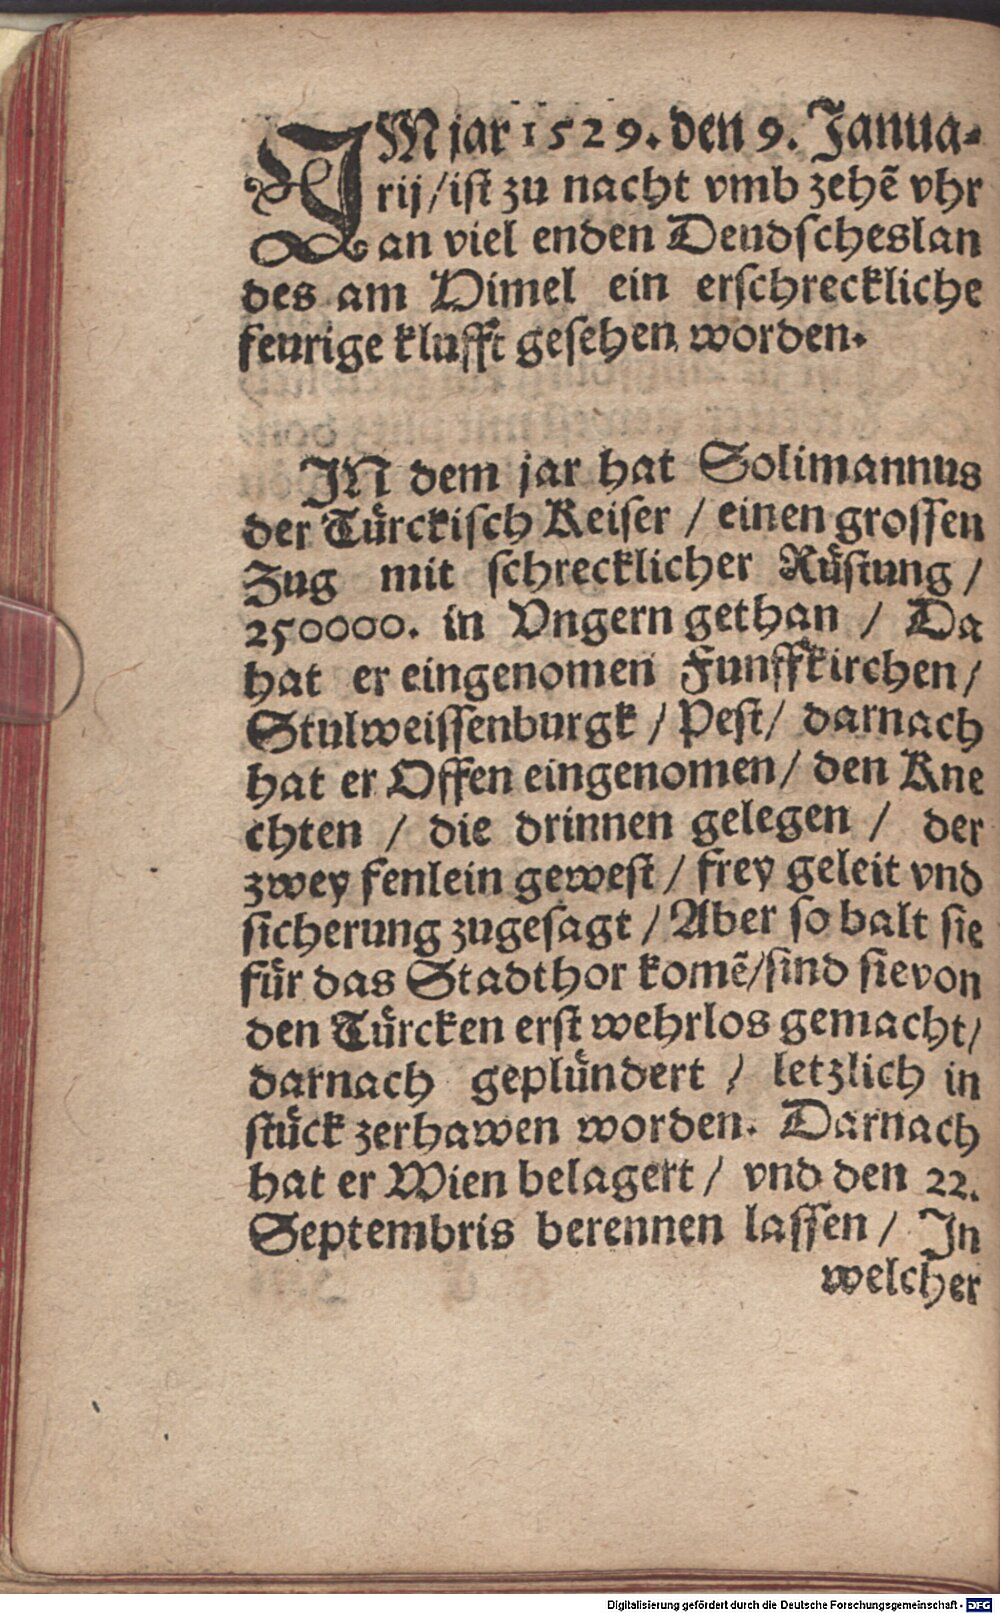 IM jar 1529. den 9. Janua⸗
rij/ist zu nacht vmb zehẽ vhr
an viel enden Deudscheslan
des am Himel ein erschreckliche
feurige klufft gesehen worden.
IN dem jar hat Solimannus
der Türckisch Keiser / einen grossen
Zug mit schrecklicher Rüstung /
250000. in Vngern gethan / Da
hat er eingenomen Funffkirchen/
Stulweissenburgk / Pest/ darnach
hat er Offen eingenomen/ den Kne
chten / die drinnen gelegen / der
zwey fenlein gewest / frey geleit vnd
sicherung zugesagt / Aber so balt sie
für das Stadthor komẽ/sind sie von
den Türcken erst wehrlos gemacht/
darnach geplündert / letzlich in
stück zerhawen worden. Darnach
hat er Wien belagert / vnd den 22.
Septembris berennen lassen / In
welcher
Digitalisierung gefördert durch die Deutsche Forschungsgemeinschaft - DFG